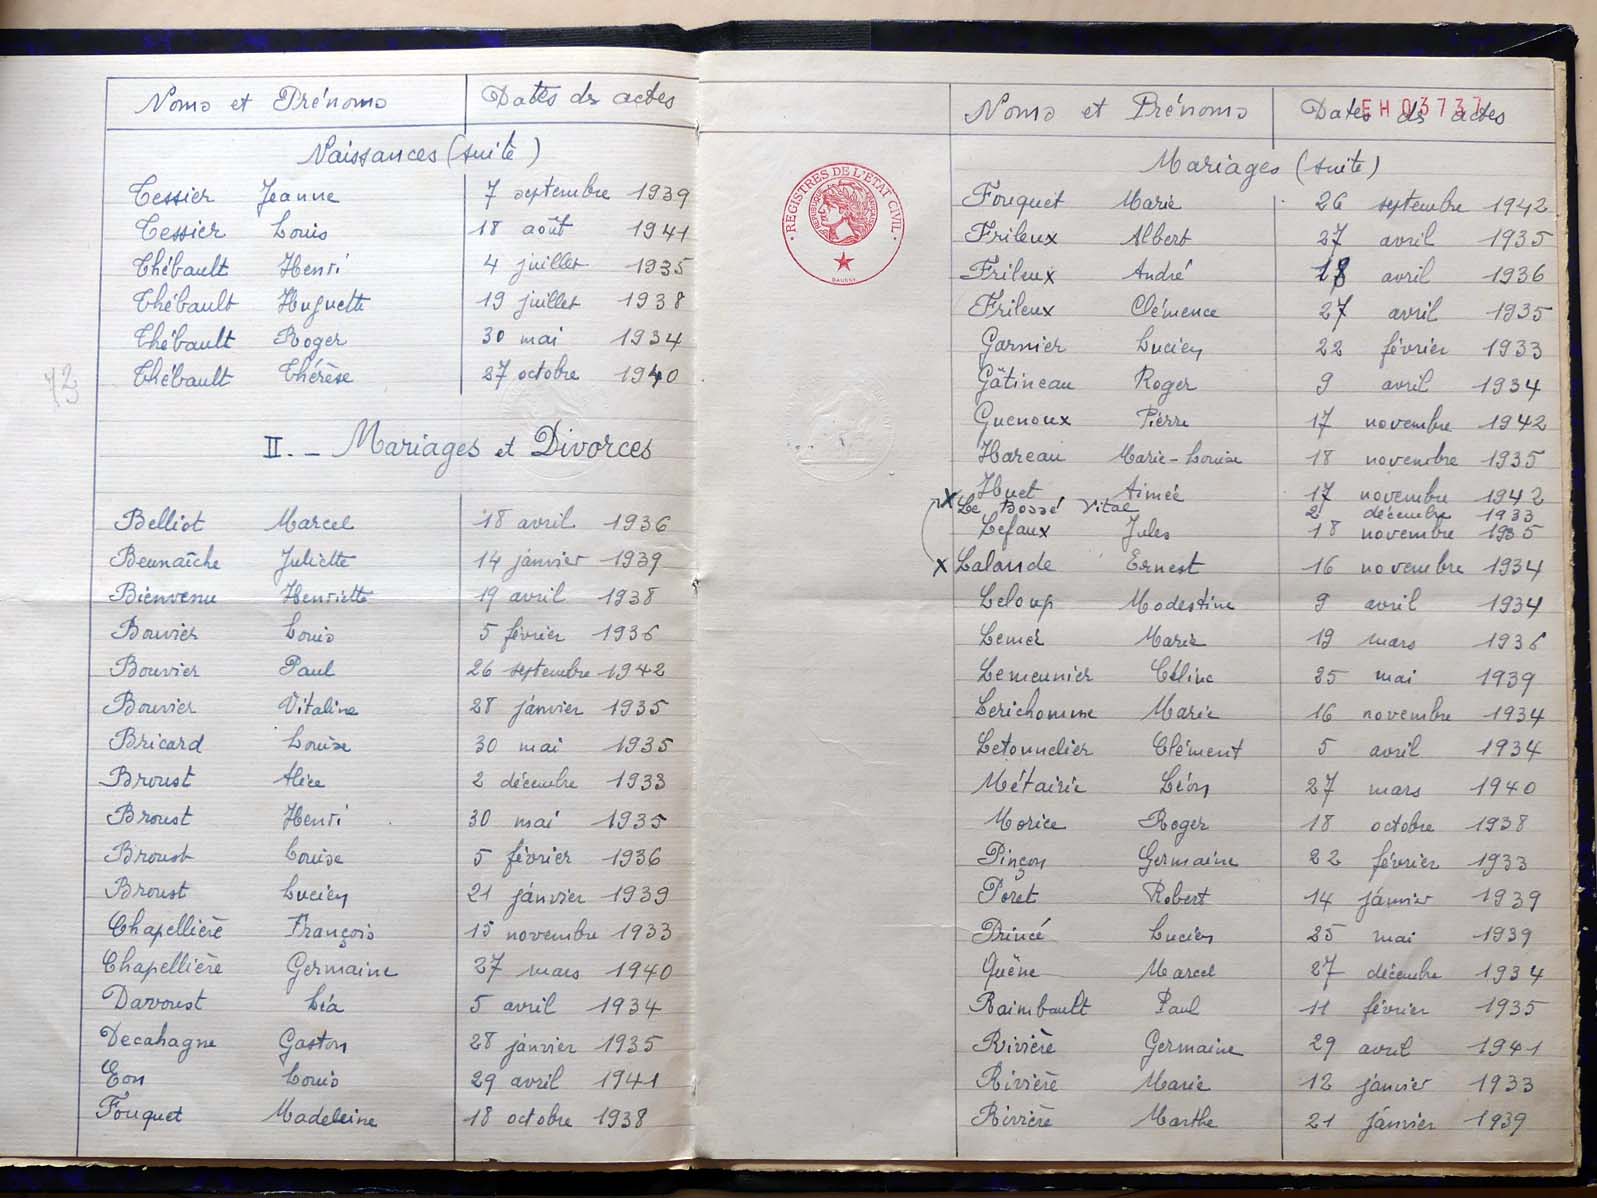 Noms et Prénoms Dates des actes
Naissances (suite)
Tessier Jeanne 7 septembre 1939
Tessier Louis 18 août 1941
Thébault Henri 4 juillet 1935
Thébault Huguette 19 juillet 1938
Thébault Roger 30 mai 1934
Thébault Thérèse 27 octobre 1940
73
II. - Mariages et Divorces
Belliot Marcel 18 avril 1936
Beunaîche Juliette 14 janvier 1939
Bienvenu Henriette 19 avril 1938
Bouvier Louis 5 février 1936
Bouvier Paul 26 septembre 1942
Bouvier Vitaline 28 janvier 1935
Bricard Louise 30 mai 1935
Broust Alice 2 décembre 1933
Broust Henri 30 mai 1935
Broust Louise 5 février 1936
Broust Lucien 21 janvier 1939
Chapellière François 15 novembre 1933
Chapellière Germaine 27 mars 1940
Davoust Léa 5 avril 1934
Decahagne Gaston 28 janvier 1935
Eon Louis 29 avril 1941
Fouquet Madeleine 18 octobre 1938
REGISTRES DE L'ETAT CIVIL
RÉPUBLIQUE FRANÇAISE
Noms et Prénoms Dates des actes
EH 03737
Mariages (suite)
Fouquet Marie 26 septembre 1942
Frileux Albert 27 avril 1935
Frileux André 18 avril 1936
Frileux Clémence 27 avril 1935
Garnier Lucien 22 février 1933
Gâtineau Roger 9 avril 1934
Guenoux Pierre 17 novembre 1942
Hareau Marie-Louise 18 novembre 1935
Huet Aimée 17 novembre 1942
x Le Bossé Vital 2 décembre 1933
Lefaux Jules 18 novembre 1935
x Lalande Ernest 16 novembre 1934
Leloup Modestine 9 avril 1934
Lemée Marie 19 mars 1936
Lemeunier Céline 25 mai 1939
Lerichomme Marie 16 novembre 1934
Letournelier Clément 5 avril 1934
Métairie Léon 27 mars 1940
Morice Roger 18 octobre 1938
Pinçon Germaine 22 février 1933
Poret Robert 14 janvier 1939
Princé Lucien 25 mai 1939
Quêne Marcel 27 décembre 1934
Raimbault Paul 11 février 1935
Rivière Germaine 29 avril 1941
Rivière Marie 12 janvier 1933
Rivière Marthe 21 janvier 1939